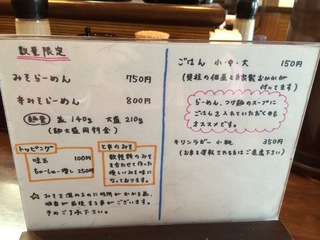 数量限定
みそらーめん 750円
辛みそらーめん 800円
麺量 並 140g 大盛 210g
(麺大盛同料金)
トッピング
味玉 100円
ちゃーしゅー増し 250円
とまのみそ
数種類のみそ
を合わせて作った
優しいみそ味に
なっております。
☆ みそと混ぜるのに時間がかかる為、
提供が前後する事がございます。
予めご了承下さい。
ごはん 小・中・大 150円
付いてます)
らーめん、つけ麺のスープに
ごはんを入れていただくのも
オススメです。
キリンラガー 小瓶 350円
(お車を運転される方はご遠慮下さい)